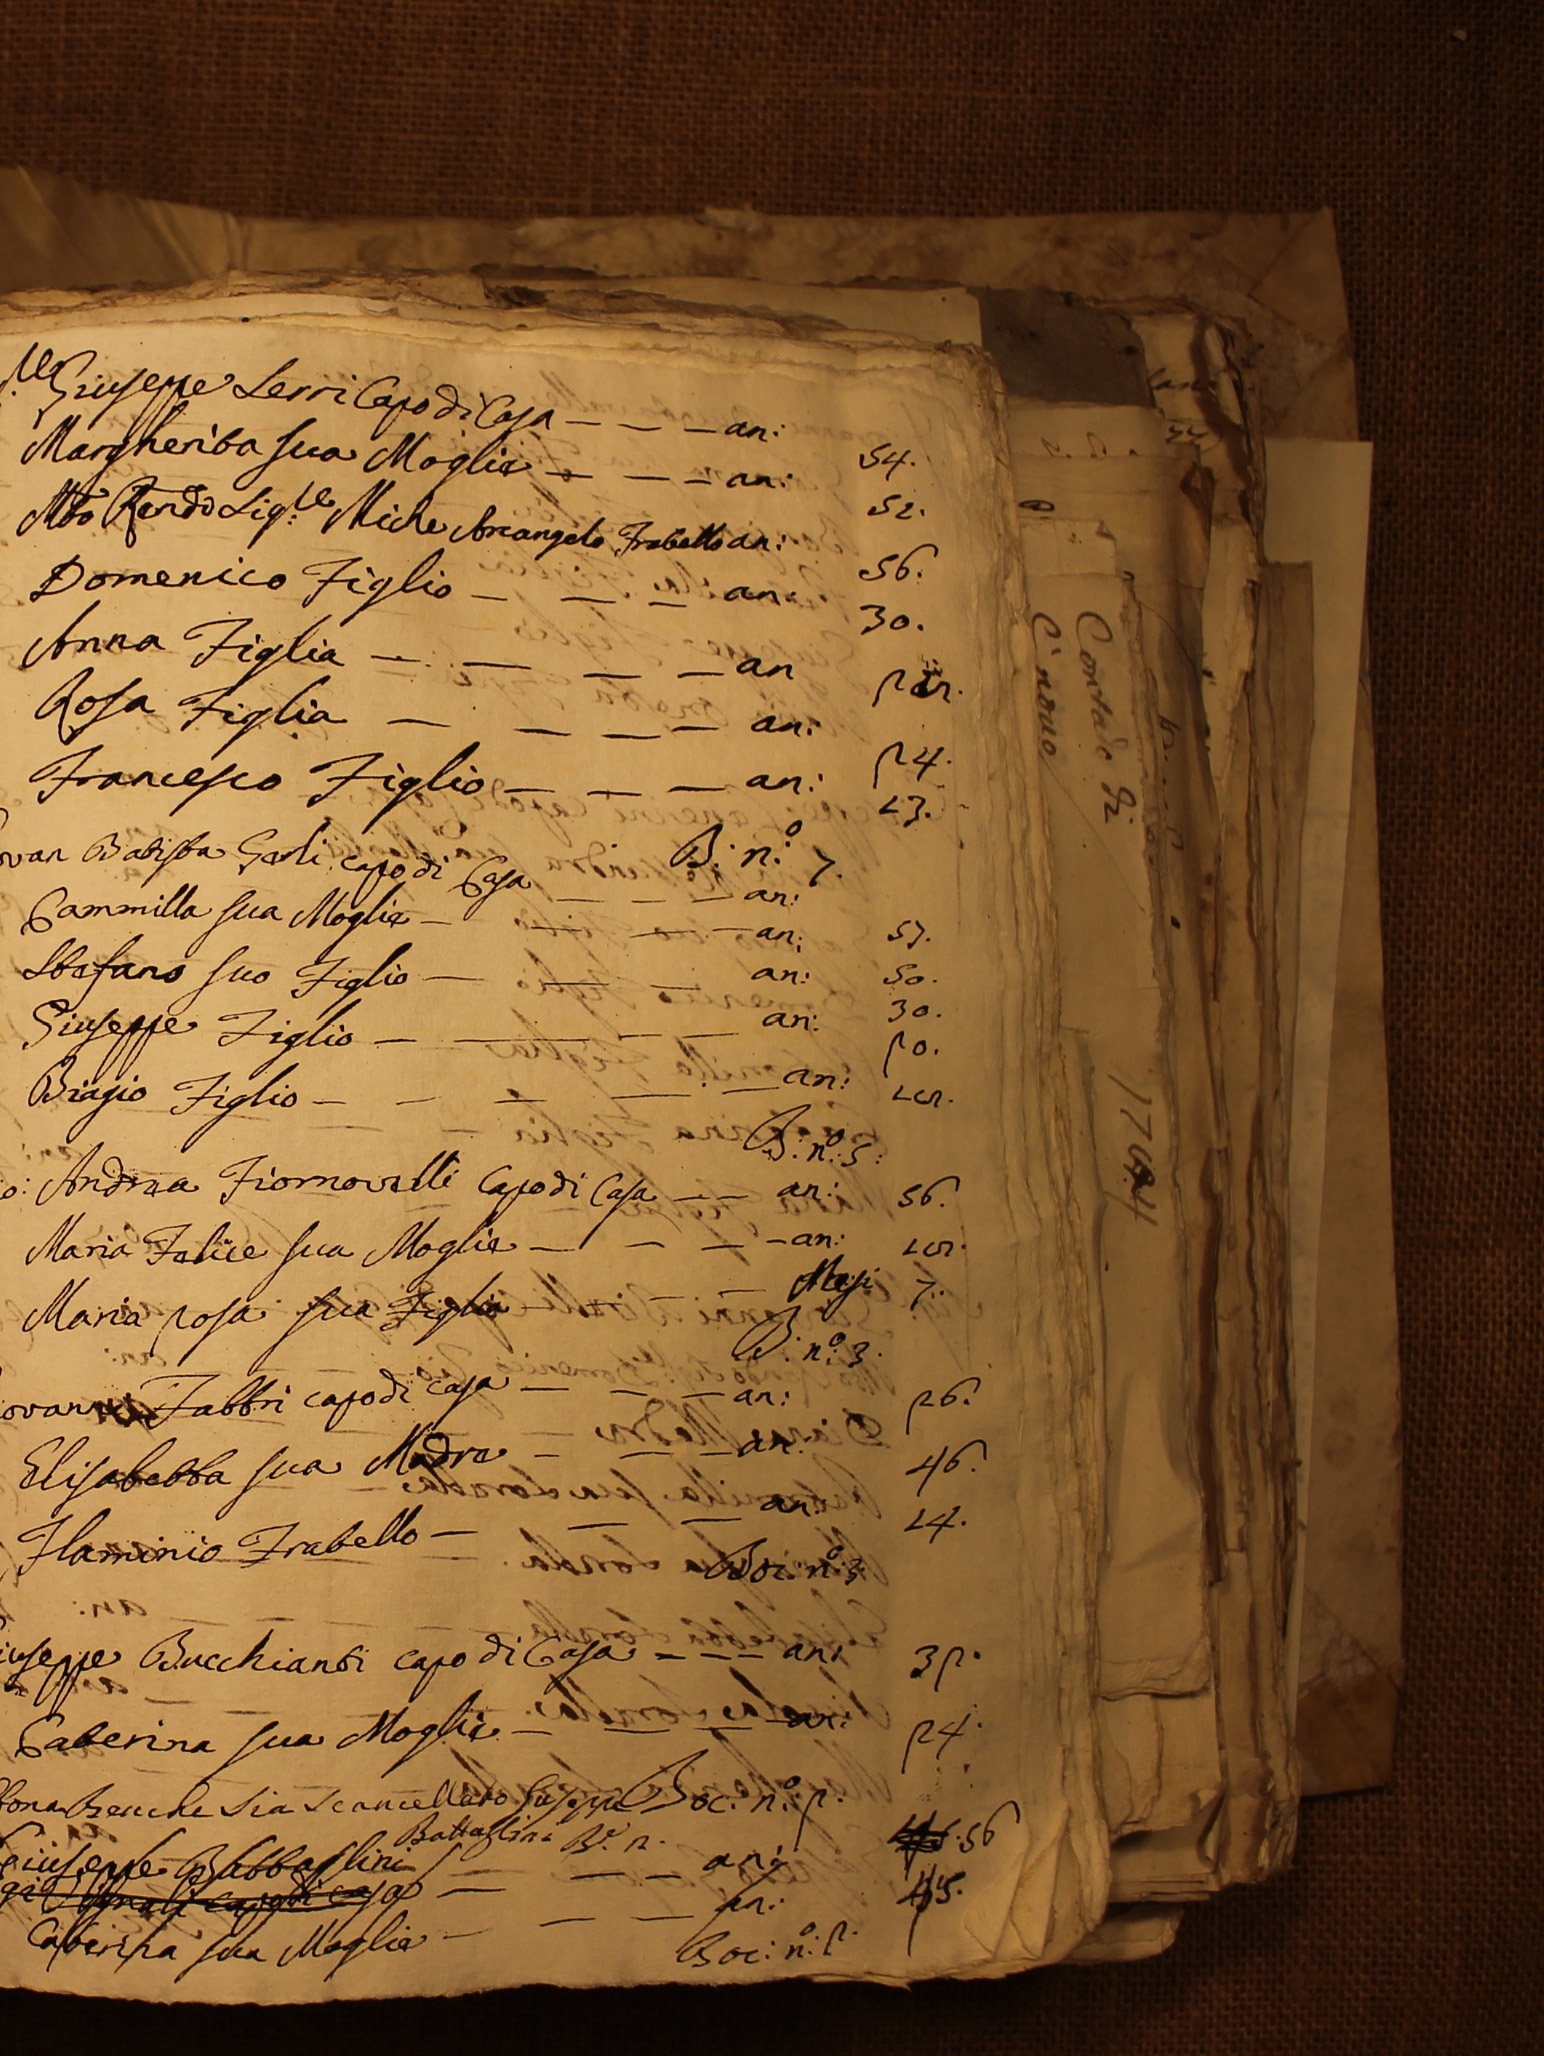 Giuseppe Lerri Capo di Casa — — — an: 54.
Margherita sua Moglie — — — an: 52.
Mto Rendo Sig.re Miche Arcangelo Fratello an: 56.
Domenico Figlio — — — an: 30.
Anna Figlia — — — — an
Rosa Figlia — — — — an: 24.
Francesco Figlio — — — an: 13.
B: n:o 7.
ovan Batista Gerli capo di Casa — — — an: 57.
Cammilla sua Moglie — — — — an: 50.
Stefano suo Figlio — — — an: 30.
Giuseppe Figlio — — — — an: 20.
Biagio Figlio — — — — — an:
B: n:o 5:
o: Andrea Fiornovelli capo di Casa — — an: 56.
Maria Felice sua Moglie — — — — an:
Maria rosa sua Figlia — — — Mesi 7.
B: n:o 3.
ovanni Fabbri capo di casa — — — an: 26.
Elisabetta sua Madre — — — an: 46.
Flaminio Fratello — — — an: 14.
Boc: n:o 3.
iuseppe Bucchianti capo di Casa — — — an: 32.
Caterina sua Moglie — — — an: 24.
Boc: n:o 2.
Benche Sia Scancellato Giuseppe
Battaglini
Giuseppe Battaglini — — — an: 56
capo di casa — — — an: 45.
Caterina sua Moglie —
Boc: n:o 2.
Contado di
C nono
1764